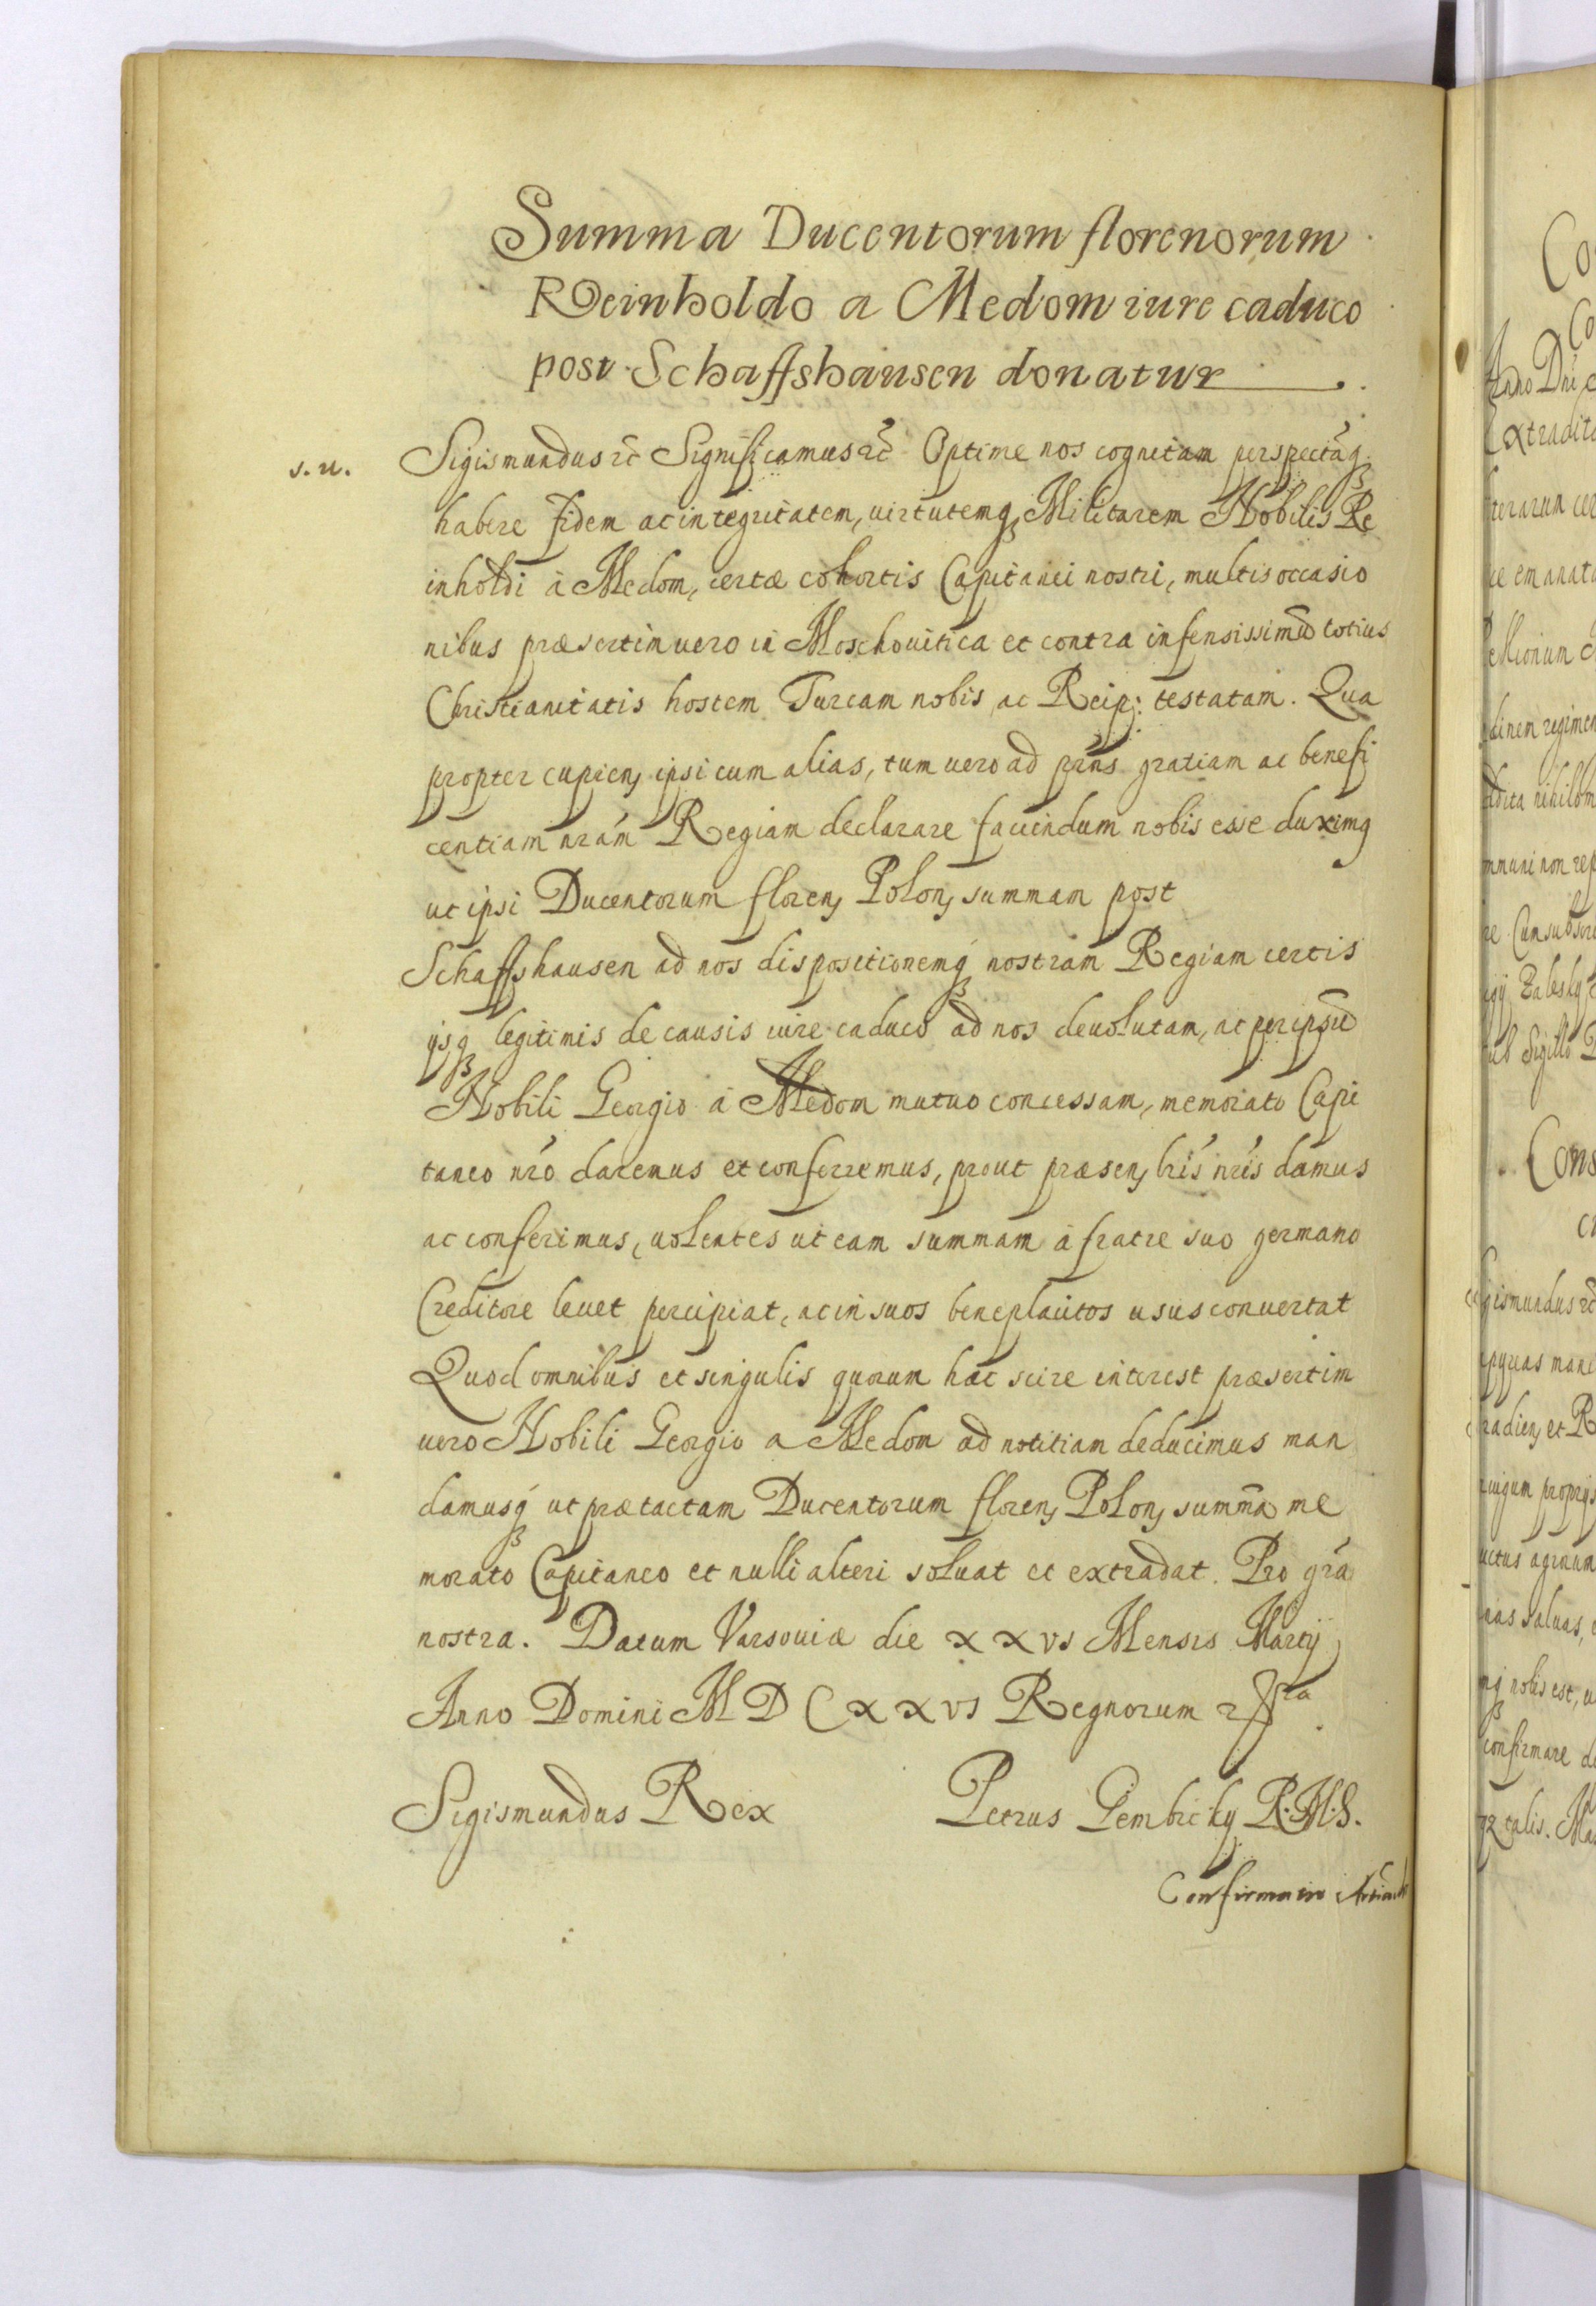 Summa Ducentorum florenorum
Reinholdo a Medom iure caduco
post Schaffshausen donatur.
s. n. Sigismundus etc Significamus etc Optime nos cognitam perspectāq₃
habere fidem ac integritatem, uirtutemq₃ Militarem Nobilis Re
inholdi à Medom, certæ cohortis Capitanei nostri, multis occasio
nibus præsertim uero in Moschouitica et contra infensissimū totius
Christianitatis hostem Turcam nobis ac Reip: testatam. Qua
propter cupien ipsi cum alias, tum uero ad præns gratiam ac benefi
centiam nram Regiam declarare faciendum nobis esse duximq
ut ipsi Ducentorum floren Polon summam post
Schaffshausen ad nos dispositionemq₃ nostram Regiam certis
ijsq₃ legitimis de causis iure caduco ad nos deuolutam, ac per ipsū
Nobili Georgio à Medom mutuo concessam, memorato Capi
taneo nro daremus et conferremus, prout præsen lris nris damus
ac conferimus, uolentes ut eam summam à fratre suo germano
Creditore leuet percipiat, ac in suos beneplacitos usus conuertat
Quod omnibus et singulis quorum hac scire interest præsertim
uero Nobili Georgio a Medom ad notitiam deducimus man
damusq₃ ut prætactam Ducentorum floren Polon summā me
morato Capitaneo et nulli alteri soluat et extradat. Pro gra
nostra. Datum Varsouiæ die XXVI Mensis Martij
Anno Domini MDCXXVI Regnorum etc
Sigismundus Rex Petrus Gembicky R.M.S.
Confirmatio